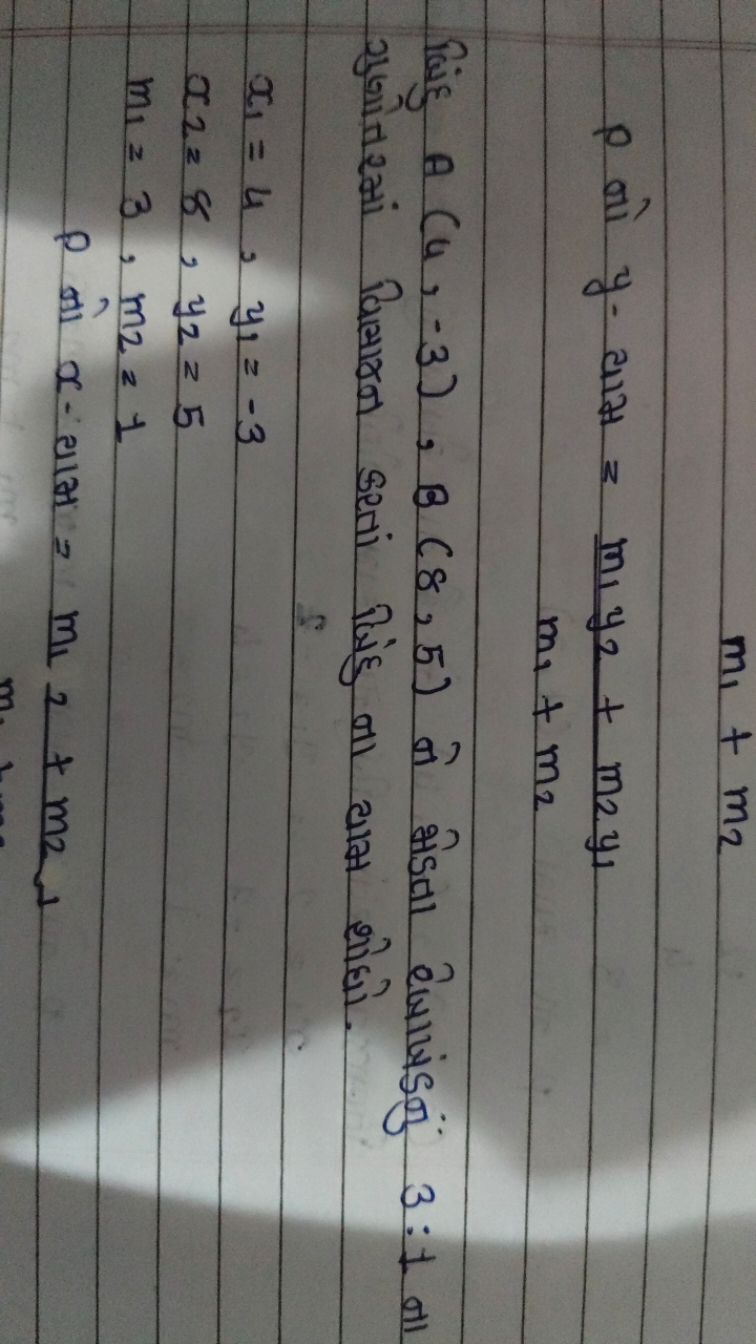 m₁ + m₂
P નો y - યામ = m₁y₂ + m₂y₁
m₁ + m₂
બિંદુ A (4, -3), B (8, 5) ને જોડતા રેખાખંડનું 3 : 1 ના
ગુણોત્તરમાં વિભાજન કરતાં બિંદુ ના યામ શોધો.
x₁ = 4, y₁ = -3
x₂ = 8, y₂ = 5
m₁ = 3, m₂ = 1
P નો x - યામ = m₁ 2 + m₂ 1